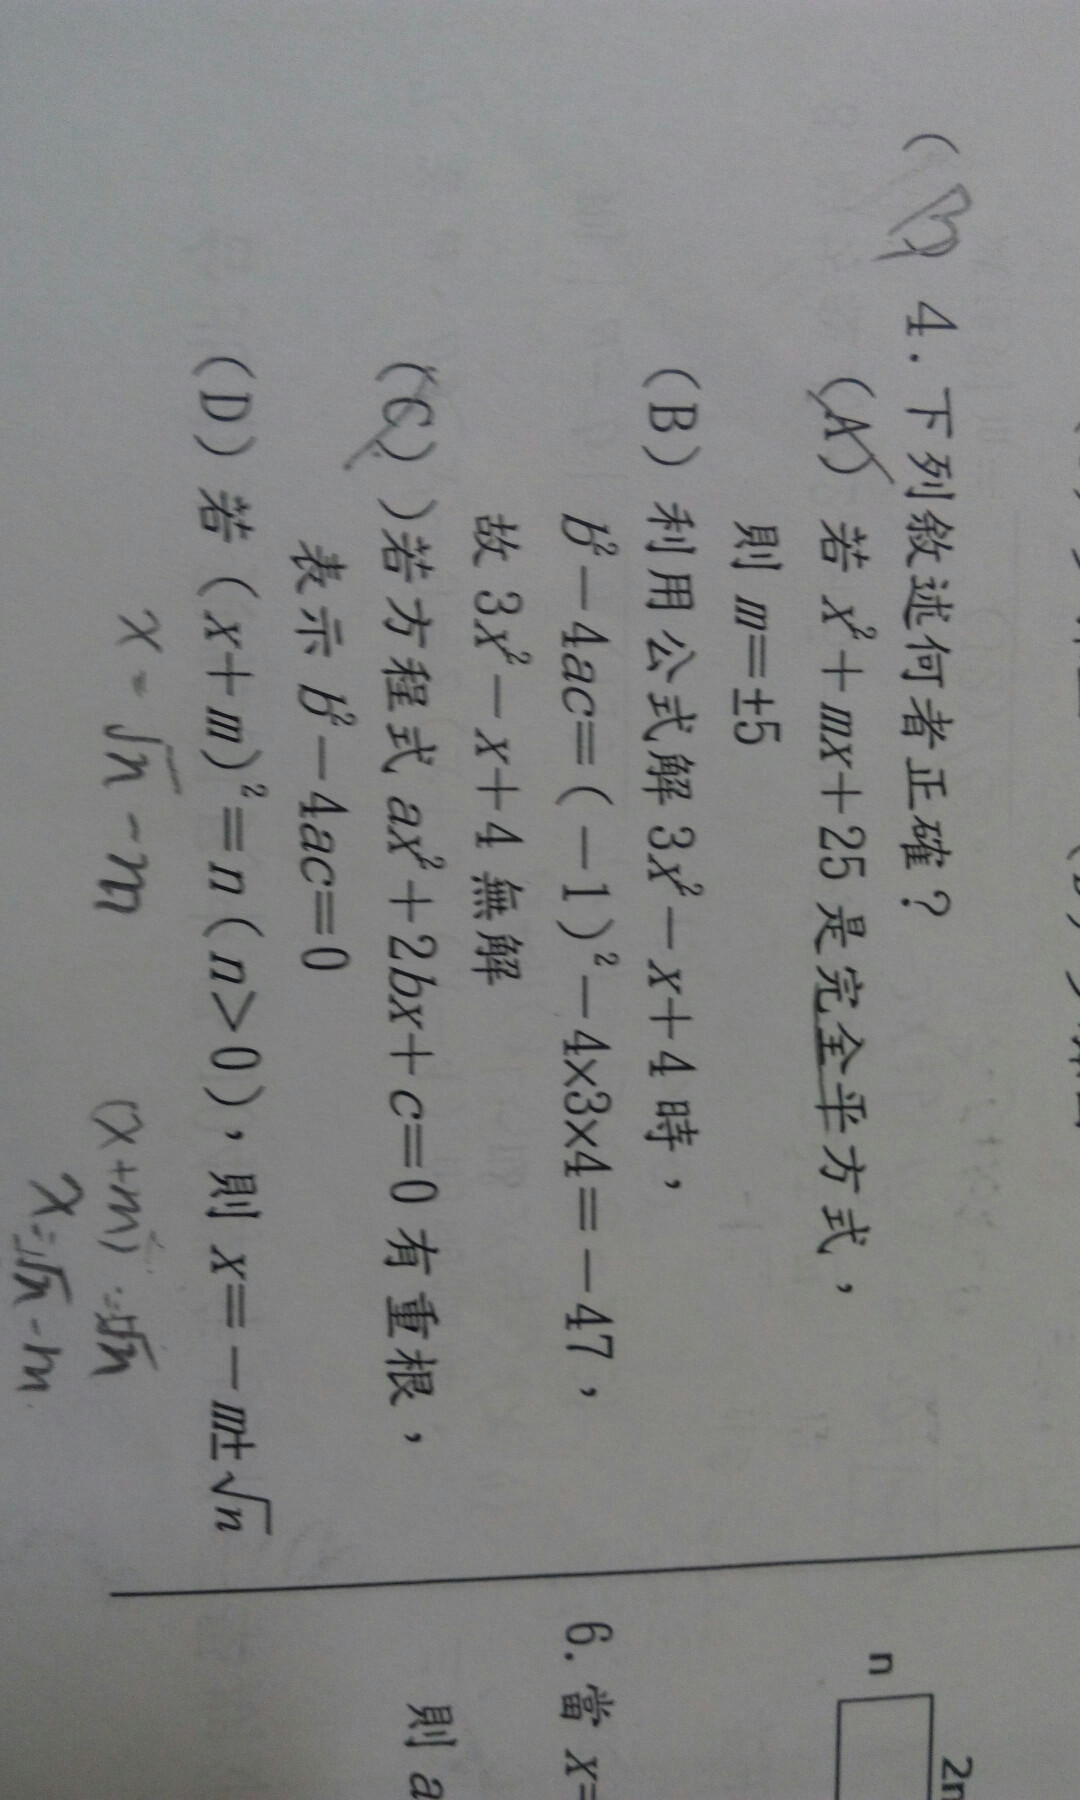 (B) 4.下列敘述何者正確？
(A) 若 x²+mx+25 是完全平方式，
則 m=±5
(B) 利用公式解 3x²-x+4 時，
b²-4ac=(-1)²-4×3×4=-47，
故 3x²-x+4 無解
(C) )若方程式 ax²+2bx+c=0 有重根，
表示 b²-4ac=0
(D) 若 (x+m)²=n(n>0)，則 x=-m±√n
x=√n-m
(x+m)=±√n
x=√n-m
n
2n
6.當 x=
則 a